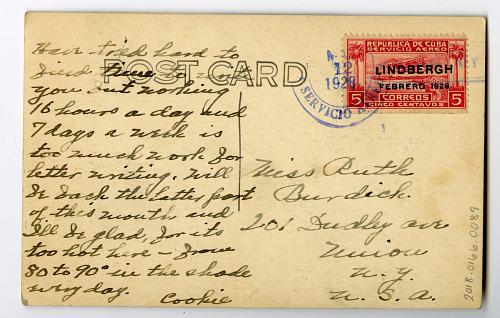 Have tried hard to
find time to write
you but working
16 hours a day and
7 days a week is
too much work for
letter writing. Will
be back the latter part
of this mouth and
I'll be glad, for its
too hot here - from
80 to 90° in the shade
every day.
Cookie
POST CARD
12
1928
SERVICIO
REPUBLICA DE CUBA
SERVICIO AEREO
LINDBERGH
FEBRERO 1928
5 CORREOS 5
CINCO CENTAVOS
Miss Ruth
Burdick
201 Dudley ave
Union
N. Y.
U. S. A.
2018.0166.0089